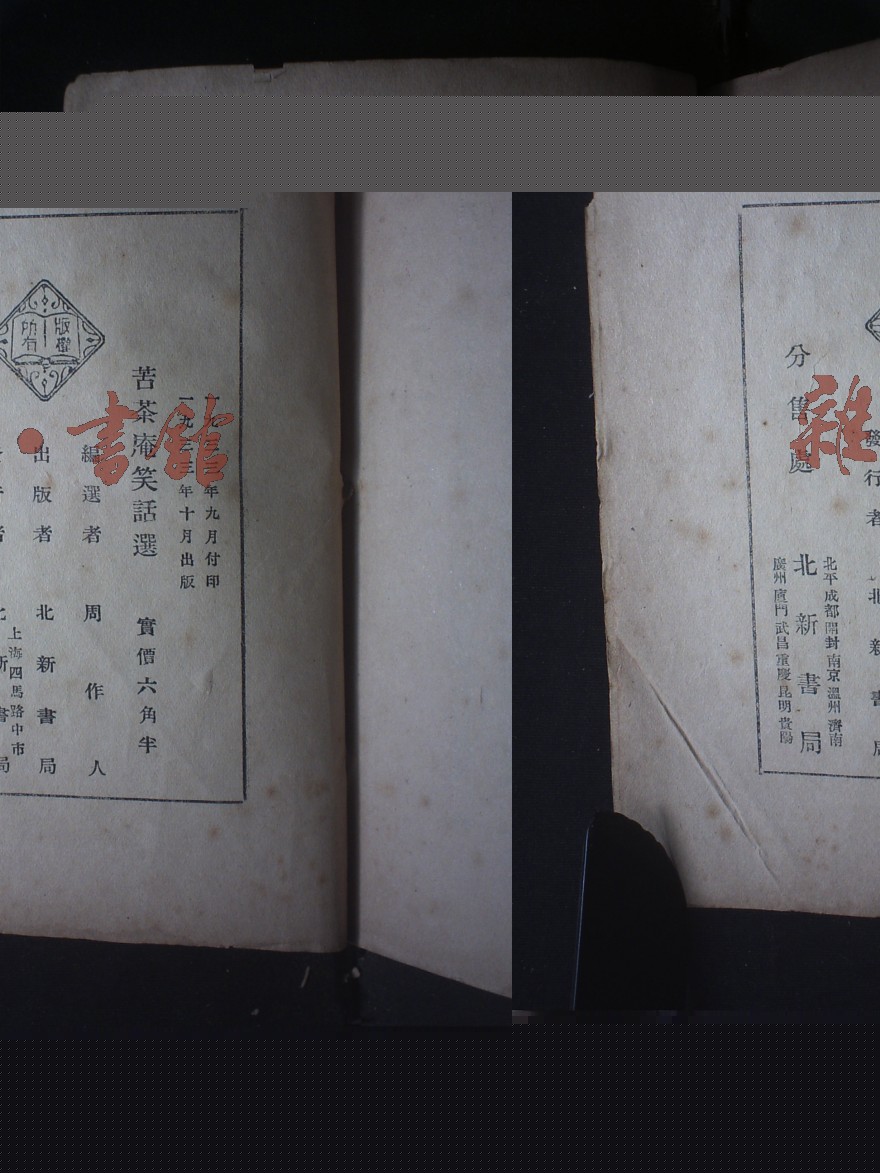 一九三三年九月付印
一九三三年十月出版
苦茶庵笑話選 實價六角半
編選者 周作人
出版者 北新書局
上海四馬路中市
版權所有
書館
雜
發行者 北新書局
北平成都開封南京溫州濟南
分售處 北新書局
廣州廈門武昌重慶昆明貴陽